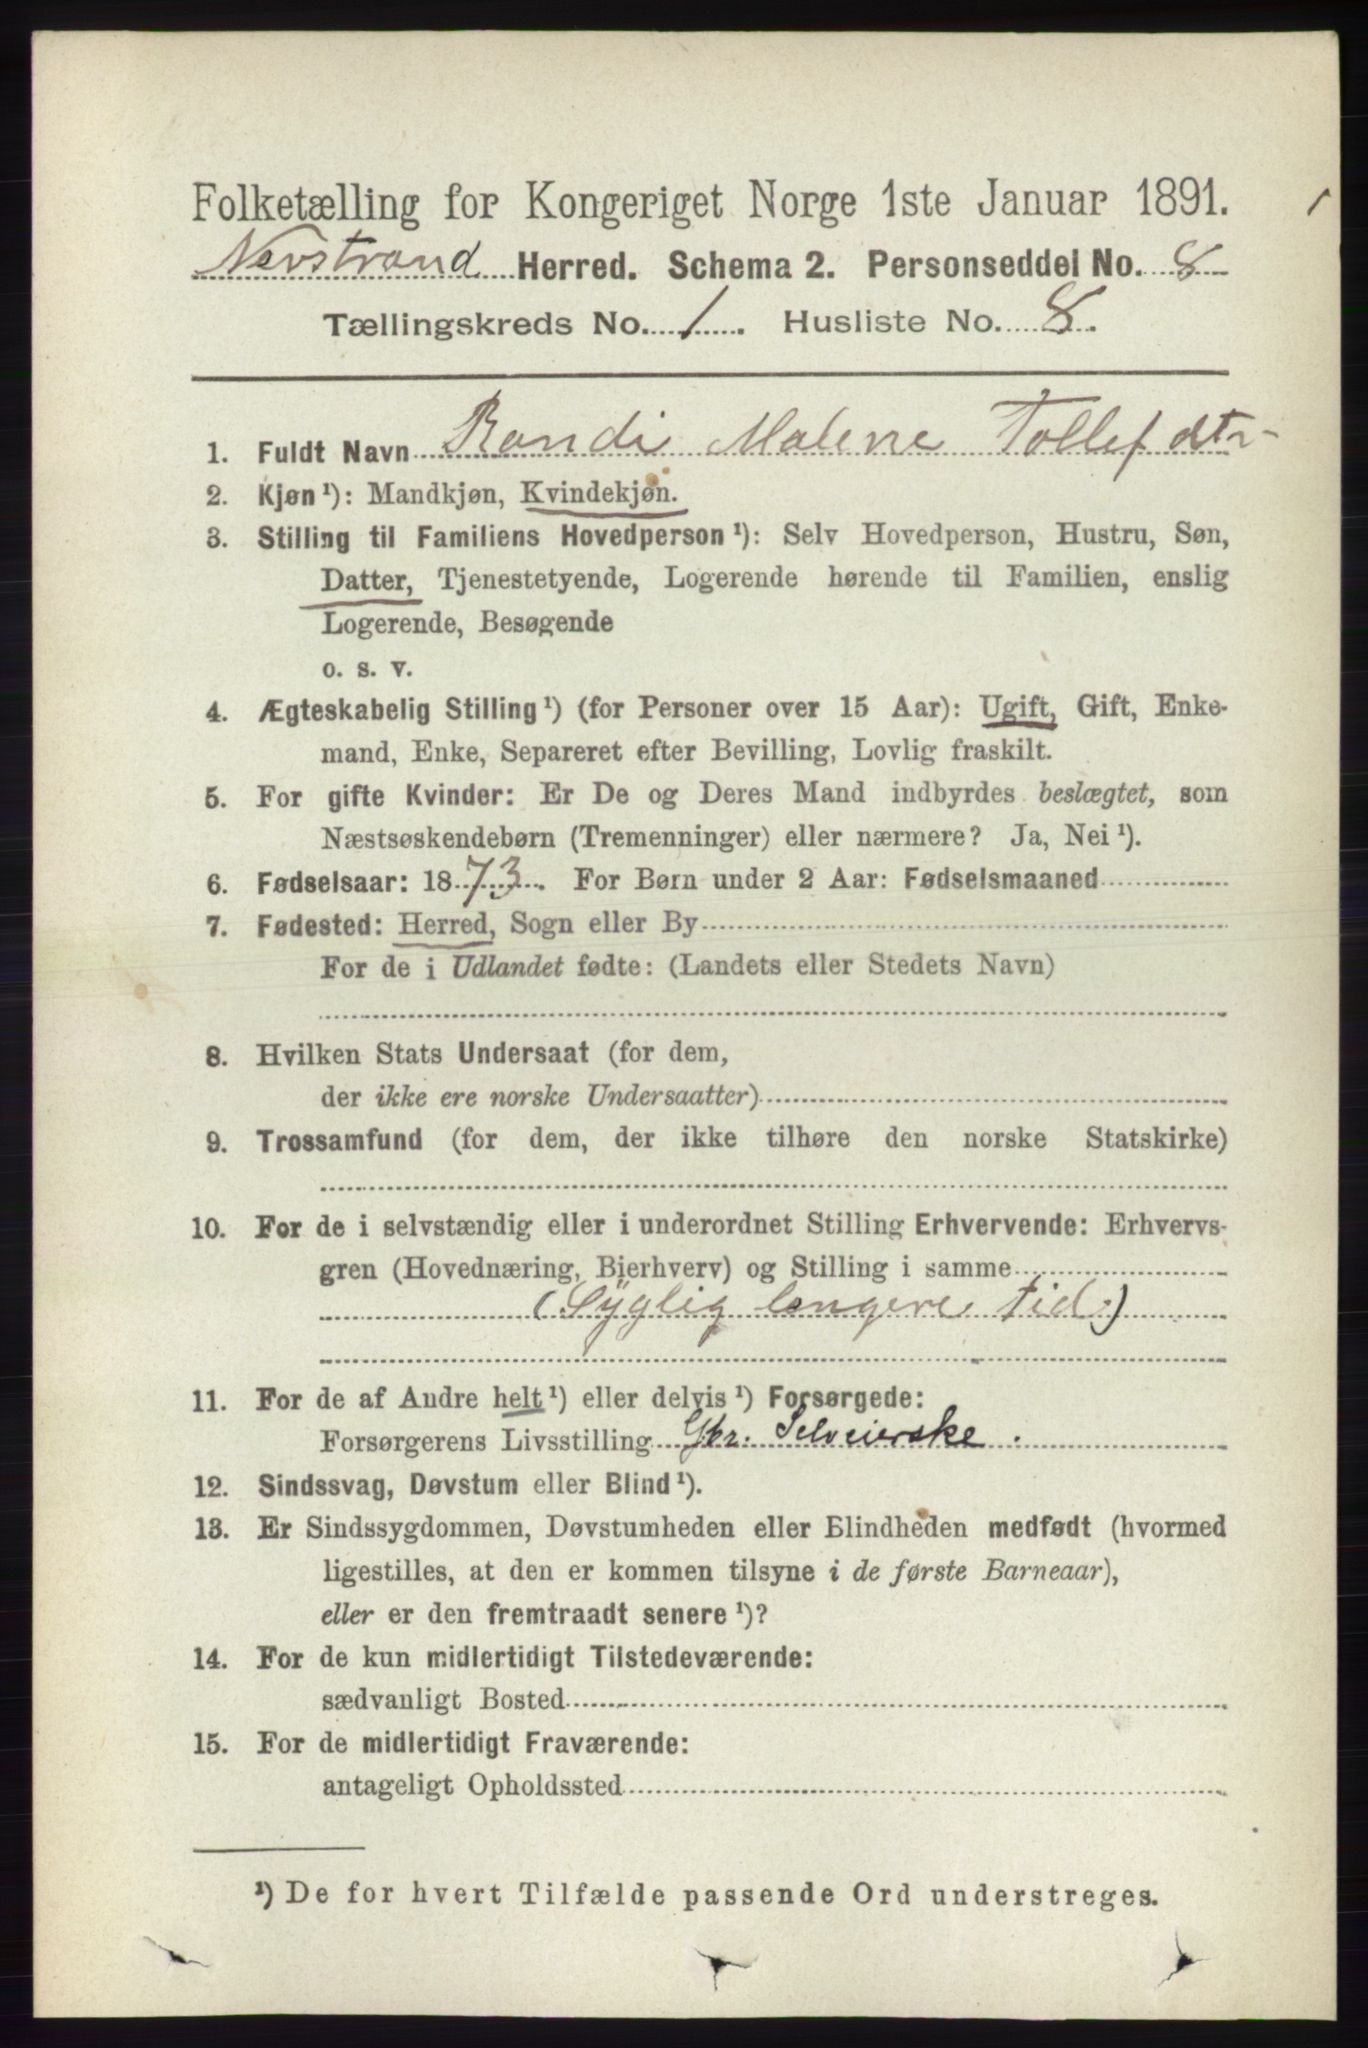 Folketælling for Kongeriget Norge 1ste Januar 1891.
Nerstrand Herred. Schema 2. Personseddel No. 8
Tællingskreds No. 1. Husliste No. 8.
1. Fuldt Navn Randi Malene Tollefdtr
2. Kjøn ¹): Mandkjøn, Kvindekjøn.
3. Stilling til Familiens Hovedperson ¹): Selv Hovedperson, Hustru, Søn,
Datter, Tjenestetyende, Logerende hørende til Familien, enslig
Logerende, Besøgende
o. s. v.
4. Ægteskabelig Stilling ¹) (for Personer over 15 Aar): Ugift, Gift, Enke-
mand, Enke, Separeret efter Bevilling, Lovlig fraskilt.
5. For gifte Kvinder: Er De og Deres Mand indbyrdes beslægtet, som
Næstsøskendebørn (Tremenninger) eller nærmere? Ja, Nei ¹).
6. Fødselsaar: 1873. For Børn under 2 Aar: Fødselsmaaned
7. Fødested: Herred, Sogn eller By
For de i Udlandet fødte: (Landets eller Stedets Navn)
8. Hvilken Stats Undersaat (for dem,
der ikke ere norske Undersaatter)
9. Trossamfund (for dem, der ikke tilhøre den norske Statskirke)
10. For de i selvstændig eller i underordnet Stilling Erhvervende: Erhvervs-
gren (Hovednæring, Bierhverv) og Stilling i samme
(Syglig længere tid.)
11. For de af Andre helt ¹) eller delvis ¹) Forsørgede:
Forsørgerens Livsstilling Gbr. Selveierske.
12. Sindssvag, Døvstum eller Blind ¹).
13. Er Sindssygdommen, Døvstumheden eller Blindheden medfødt (hvormed
ligestilles, at den er kommen tilsyne i de første Barneaar),
eller er den fremtraadt senere ¹)?
14. For de kun midlertidigt Tilstedeværende:
sædvanligt Bosted
15. For de midlertidigt Fraværende:
antageligt Opholdssted
¹) De for hvert Tilfælde passende Ord understreges.